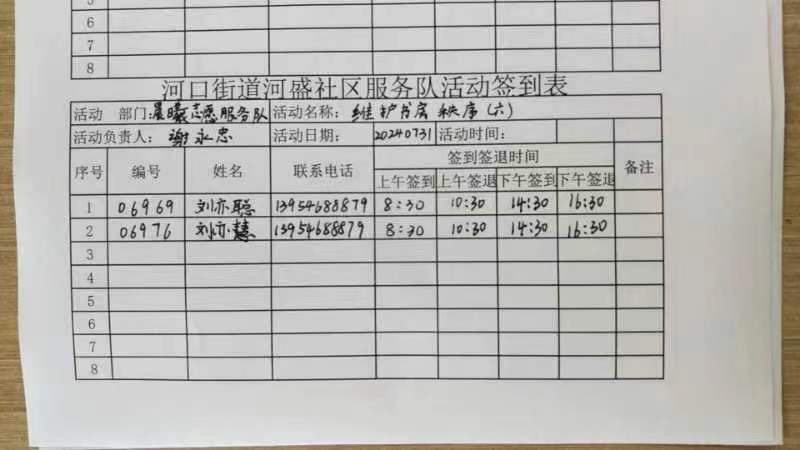 5
6
7
8
河口街道河盛社区服务队活动签到表
活动 部门:晨曦志愿服务队 活动名称: 维护书房秩序(六)
活动负责人: 谢永忠 活动日期: 20240731 活动时间:
序号 编号 姓名 联系电话 签到签退时间 备注
上午签到 上午签退 下午签到 下午签退
1 06969 刘亦聪 13954688879 8:30 10:30 14:30 16:30
2 06976 刘亦慧 13954688879 8:30 10:30 14:30 16:30
3
4
5
6
7
8